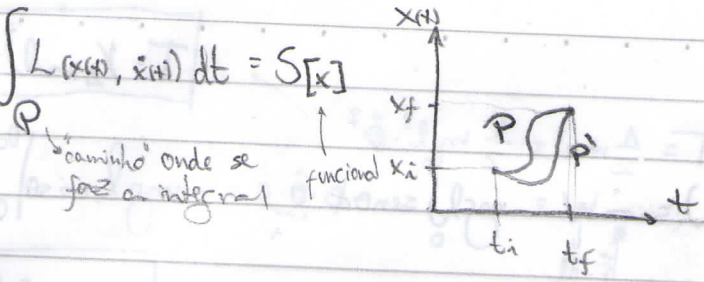 ∫ L(x(t), ẋ(t)) dt = S[x]
P
"caminho" onde se
faz a integral
funcional
x(t)
xf
P
P'
xi
t
ti
tf